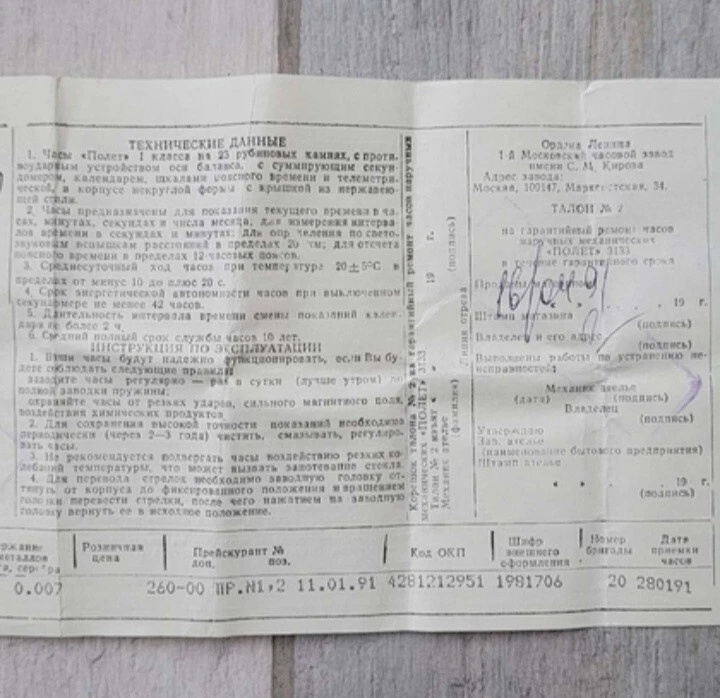 ТЕХНИЧЕСКИЕ ДАННЫЕ
1. Часы «Полет» I класса на 23 рубиновых камнях, с проти-
воударным устройством оси баланса, с суммирующим секун-
домером, календарем, шкалами поясного времени и телеметри-
ческой, в корпусе некруглой формы с крышкой из нержавею-
щей стали.
2. Часы предназначены для показания текущего времени в ча-
сах, минутах, секундах и числа месяца; для измерения интерва-
лов времени в секундах и минутах; для определения по свето-
звуковым вспышкам расстояний в пределах 20 км; для отсчета
поясного времени в пределах 12-часовых поясов.
3. Среднесуточный ход часов при температуре 20±5°С в
пределах от минус 10 до плюс 20 с.
4. Срок энергетической автономности часов при выключенном
секундомере не менее 42 часов.
5. Длительность интервала времени смены показаний кален-
даря не более 2 ч.
6. Средний полный срок службы часов 10 лет.
ИНСТРУКЦИЯ ПО ЭКСПЛУАТАЦИИ
1. Ваши часы будут надежно функционировать, если Вы бу-
дете соблюдать следующие правила:
заводите часы регулярно — раз в сутки (лучше утром) до
полной заводки пружины;
охраняйте часы от резких ударов, сильного магнитного поля,
воздействия химических продуктов.
2. Для сохранения высокой точности показаний необходимо
периодически (через 2—3 года) чистить, смазывать, регулиро-
вать часы.
3. Не рекомендуется подвергать часы воздействию резких ко-
лебаний температуры, что может вызвать запотевание стекла.
4. Для перевода стрелок необходимо заводную головку от-
тянуть от корпуса до фиксированного положения и вращением
головки перевести стрелки, после чего нажатием на заводную
головку вернуть ее в исходное положение.
Корешок талона № 2 на гарантийный ремонт часов наручных
механических «ПОЛЕТ» 3133
Талон № 2 изъят « » 19 г.
Механик ателье
(фамилия) (подпись)
Линия отреза
Ордена Ленина
1-й Московский часовой завод
имени С. М. Кирова
Адрес завода:
Москва, 109147, Марксистская, 34.
ТАЛОН № 2
на гарантийный ремонт часов
наручных механических
«ПОЛЕТ» 3133
в течение гарантийного срока
Проданы магазином
16/04.91
19 г.
Штамп магазина
(подпись)
Владелец и его адрес
(подпись)
Выполнены работы по устранению не-
исправностей:
Механик ателье
(дата) (подпись)
Владелец
(подпись)
Утверждаю
Зав. ателье
(наименование бытового предприятия)
Штамп ателье
« » 19 г.
(подпись)
металлов
Розничная
цена
Прейскурант №
доп. поз.
Код ОКП
Шифр
внешнего
оформления
Номер
бригады
Дата
приемки
часов
0.007 260-00 ПР.N1,2 11.01.91 4281212951 1981706 20 280191